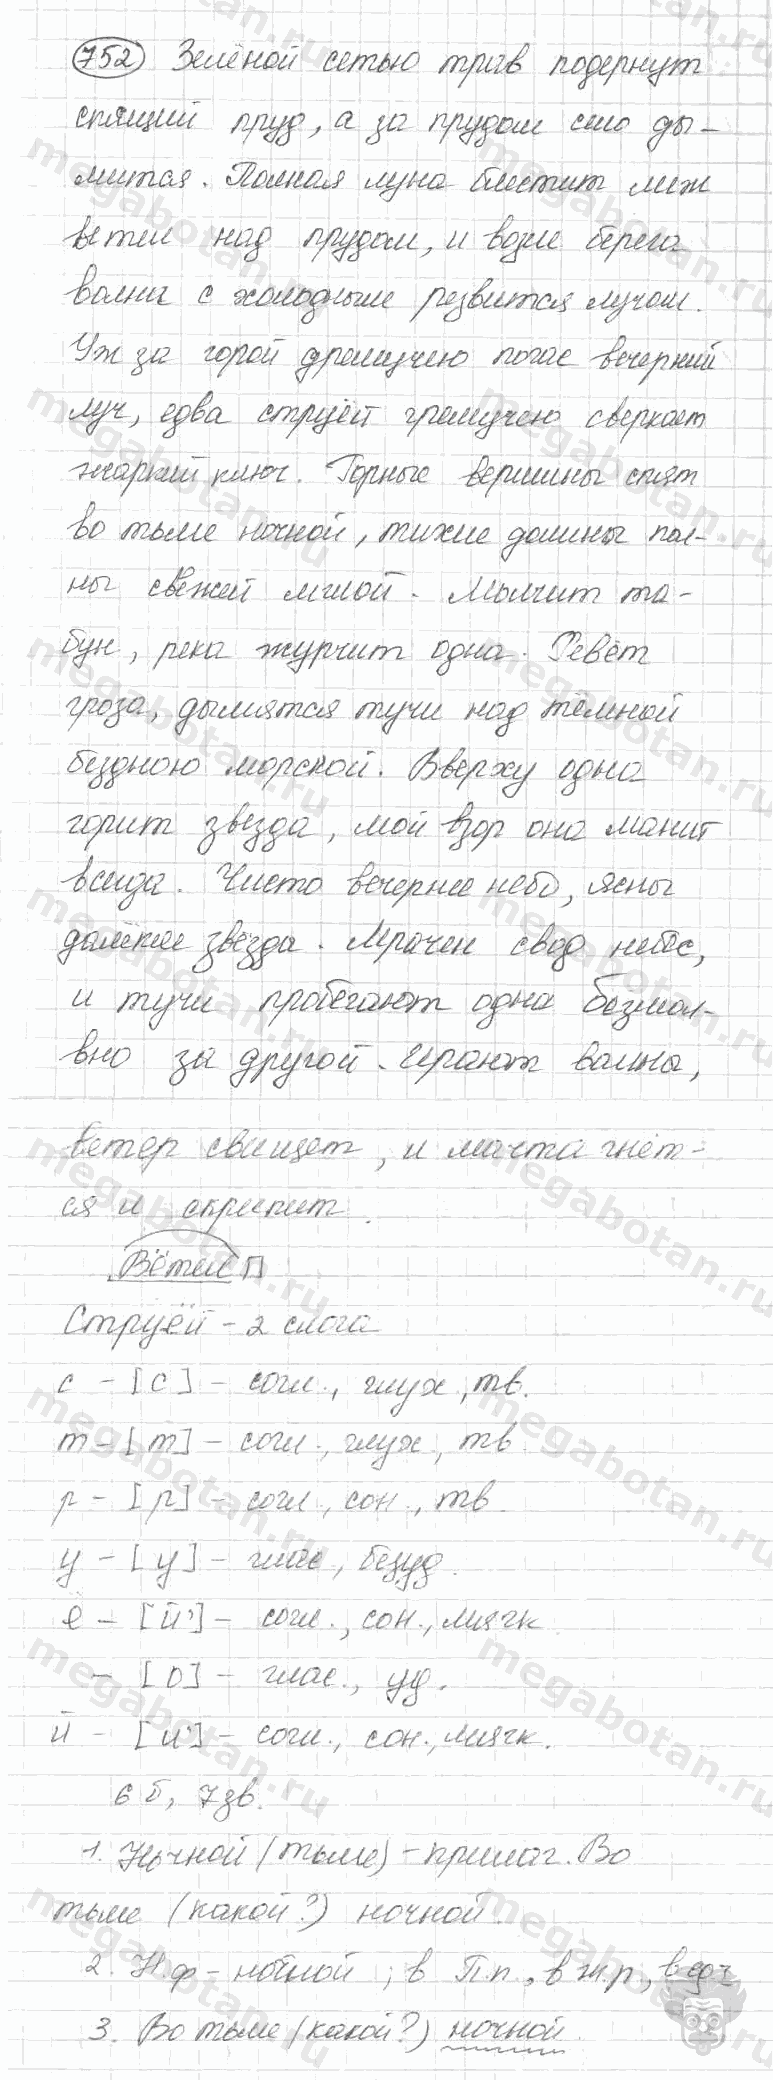 752 Зелёной сетью трав подернут
спящий пруд, а за прудом село ды-
мится. Полная луна блестит меж
ветел над прудом, и возле берега
волна с холодным резвится лучом.
Уж за горой дремучею погас вечерний
луч, едва струёй гремучею сверкает
жаркий ключ. Горные вершины спят
во тьме ночной, тихие долины пол-
ны свежей мглой. Молчит та-
бун, река журчит одна. Ревёт
гроза, дымятся тучи над тёмной
бездною морской. Вверху одна
горит звезда, мой взор она манит
всегда. Чисто вечернее небо, ясны
далёкие звёзды. Мрачен свод небес,
и тучи пробегают одна безмол-
вно за другой. Играют волны,
ветер свищет, и мачта гнёт-
ся и скрипит.
Ветел
Струёй - 2 слога
с - [с] - согл., глух., тв.
т - [т] - согл., глух., тв.
р - [р] - согл., сон., тв.
у - [у] - глас., безуд.
ё - [й'] - согл., сон., мягк.
- [о] - глас., уд.
й - [й'] - согл., сон., мягк.
6 б, 7 зв.
1. Ночной (тьме) - прилаг. Во
тьме (какой?) ночной.
2. Н.ф - ночной; в П.п., в ж.р, в ед.ч
3. Во тьме (какой?) ночной.
megabotan.ru